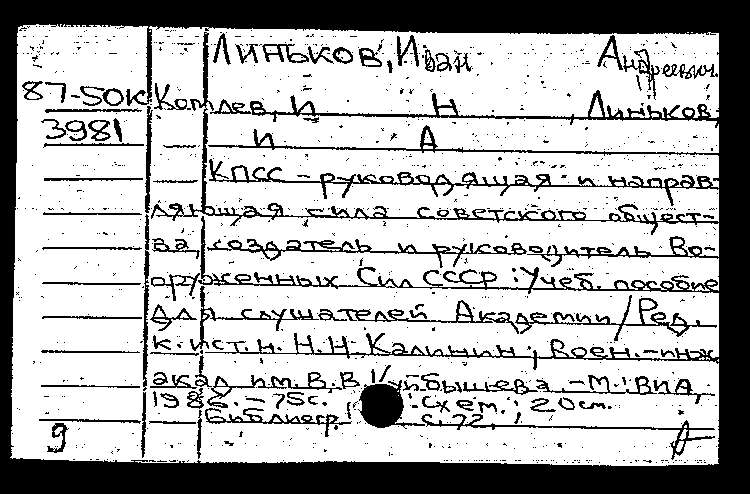 Линьков, Иван Андреевич.
87-50к Котлев, И Н , Линьков,
3981 И А
КПСС - руководящая и направ-
ляющая сила советского общест-
ва, создатель и руководитель Во-
оруженных Сил СССР : Учеб. пособие
для слушателей Академии / Ред.
к. ист. н. Н. Н. Калинин ; Воен.-инж.
акад. им. В. В. Куйбышева. - М. : ВИА,
- 75 с. : схем. ; 20 см.
Библиогр. с. 72.
9